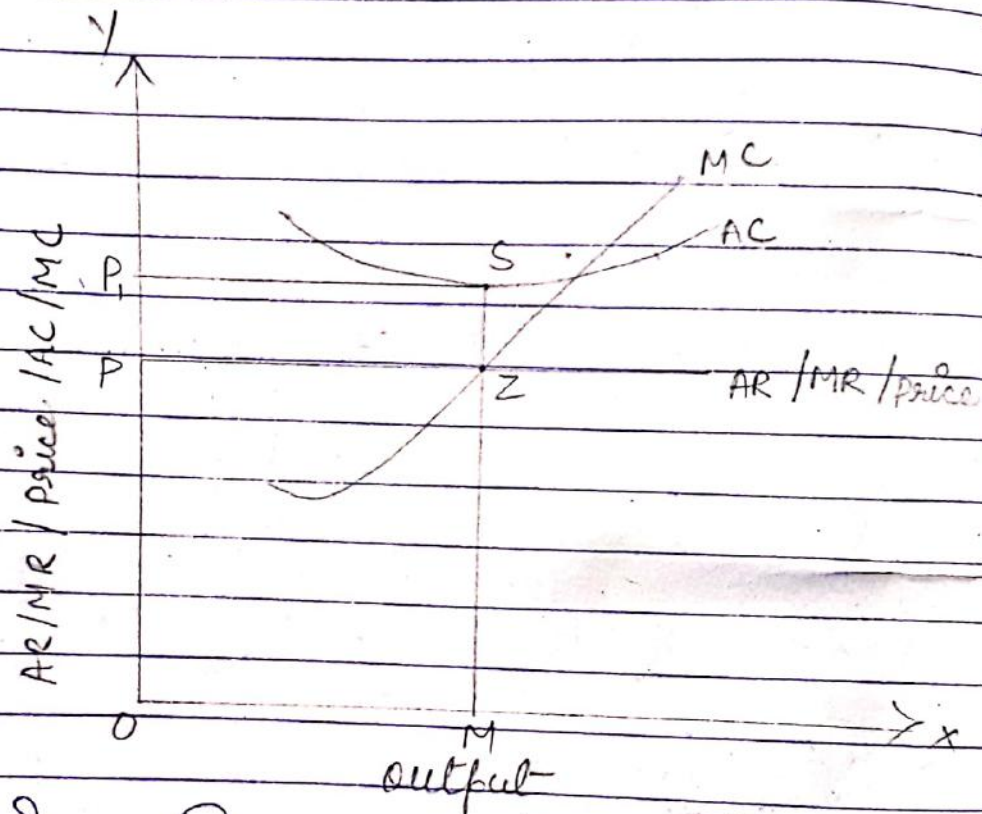 Y
MC
AC
S
P₁
P
Z
AR/MR/price
AR/MR/price/AC/MC
O
M
X
output